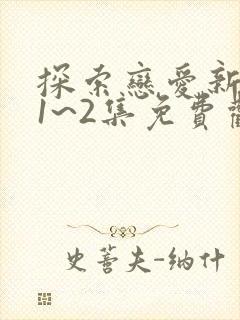 探索戀愛新
1~2集免費
史蒈夫-纳什